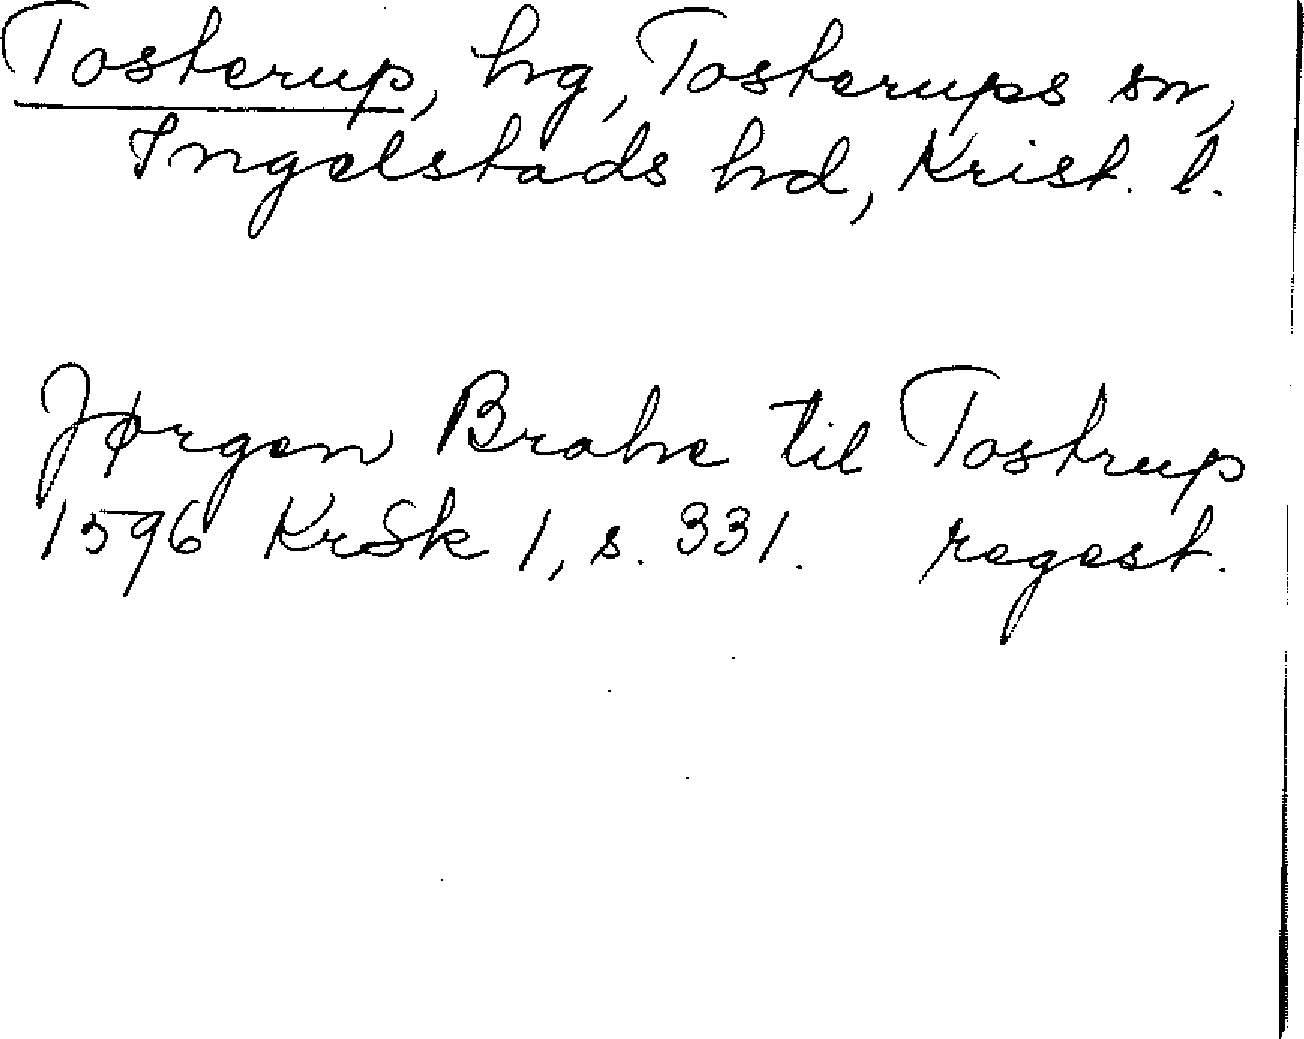 Tosterup, hg, Tosterups sn,
Ingelstads hd, Krist. l.
Jørgen Brahe til Tostrup
1596 KrSk 1, s. 331. regest.